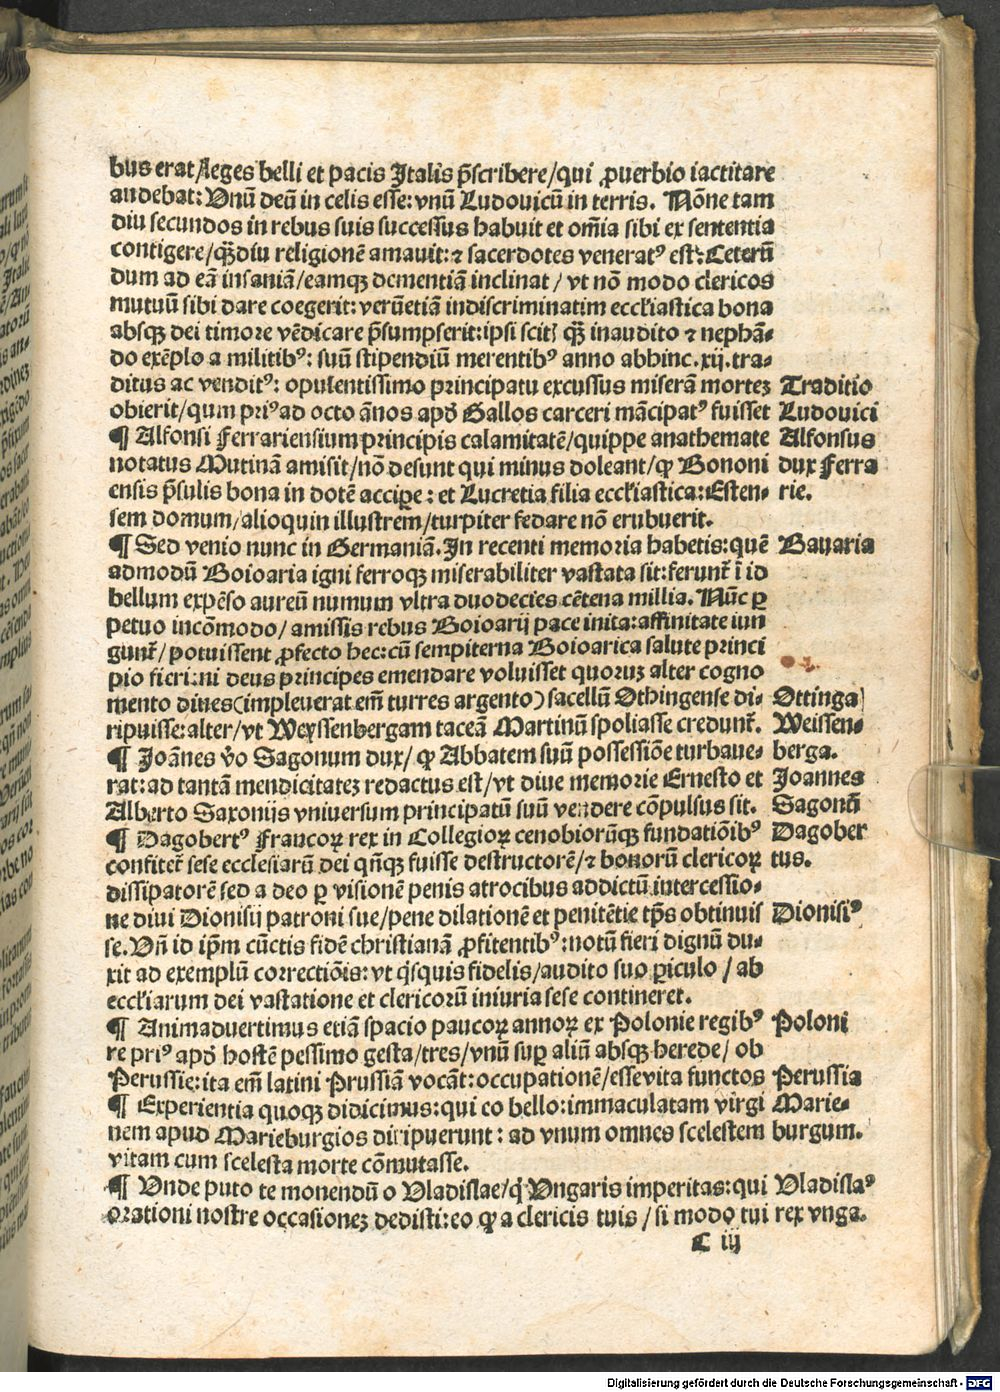 bus erat/leges belli et pacis Italis p̄scribere/qui ꝓuerbio iactitare
audebat: Vnū deū in celis esse: vnū Ludouicū in terris. Nōne tam
diu secundos in rebus suis successus habuit et om̄ia sibi ex sententia
contigere/qꝫ̄diu religionē amauit: ⁊ sacerdotes veneratꝰ est: Ceterū
dum ad eā insaniā/eamqꝫ dementiā inclinat/ vt nō modo clericos
mutuū sibi dare coegerit: verūetiā indiscriminatim eccl̄iastica bona
absqꝫ dei timore vēdicare p̄sumpserit: ipsi scitꝭ qꝫ̄ inaudito ⁊ nephā-
do exēplo a militibꝰ: suū stipendiū merentibꝰ anno abhinc .xij. tra-
ditus ac venditꝰ: opulentissimo principatu excussus miserā mortez Traditio
obierit/qum priꝰ ad octo ānos apď Gallos carceri mācipatꝰ fuisset Ludouici
¶ Alfonsi Ferrariensium principis calamitatē/quippe anathemate Alfonsus
notatus Mutinā amisit/nō desunt qui minus doleant/ꝙ Bononi dux Ferra
ensis p̄sulis bona in dotē accipe : et Lucretia filia eccl̄iastica: Esten- rie.
sem domum/alioquin illustrem/turpiter fedare nō erubuerit.
¶ Sed venio nunc in Germaniā. In recenti memoria habetis: quē Bauaria
admodū Boioaria igni ferroqꝫ miserabiliter vastata sit: ferunt᷑ ī id
bellum expēso aureū numum vltra duodecies cētena millia. Nūc ꝑ
petuo incōmodo/ amissis rebus Boioarij pace inita: affinitate iun
gunt᷑/ potuissent ꝓfecto hec: cū sempiterna Boioarica salute princi
pio fieri: ni deus principes emendare voluisset quoruz alter cogno
mento diues (impleuerat em̄ turres argento) sacellū Othingense di- Ottinga
ripuisse: alter/ vt Weyssenbergam taceā Martinū spoliasse credunt᷑. Weissen-
¶ Joānes v̄o Sagonum dux/ ꝙ Abbatem suū possessiōe turbaue- berga.
rat: ad tantā mendicitatez redactus est/ vt diue memorie Ernesto et Joannes
Alberto Saxoniis vniuersum principatū suū vendere cōpulsus sit. Sagonū
¶ Dagobertꝰ Francoꝝ rex in Collegioꝝ cenobiorūqꝫ fundatiōibꝰ Dagober
confitet᷑ sese ecclesiarū dei qn̄qꝫ fuisse destructorē/⁊ bonorū clericoꝝ tus.
dissipatorē sed a deo ꝑ visionē penis atrocibus addictū intercessio-
ne diui Dionisii patroni sue/pene dilationē et penitētie tp̄s obtinuis Dionisiꝰ
se. Vn̄ id ip̄m cūctis fidē christianā ꝓfitentibꝰ: notū fieri dignū du-
xit ad exemplū correctiōis: vt qͥsquis fidelis/audito suo ꝑiculo / ab
eccl̄iarum dei vastatione et clericorū iniuria sese contineret.
¶ Animaduertimus etiā spacio paucoꝝ annoꝝ ex Polonie regibꝰ Poloni
re priꝰ apď hostē pessimo gesta/tres/vnū suꝑ aliū absqꝫ herede/ ob
Perussie: ita em̄ latini Prussiā vocāt: occupationē/esse vita functos Perussia
¶ Experientia quoqꝫ didicimus: qui eo bello: immaculatam virgi Marie-
nem apud Marieburgios diripuerunt : ad vnum omnes scelestem burgum.
vitam cum scelesta morte cōmutasse.
¶ Vnde puto te monendū o Vladislae/qͥ Vngaris imperitas: qui Vladislaꝰ
orationi nostre occasionez dedisti: eo ꝙ a clericis tuis / si modo tui rex vnga.
C iij
Digitalisierung gefördert durch die Deutsche Forschungsgemeinschaft - DFG